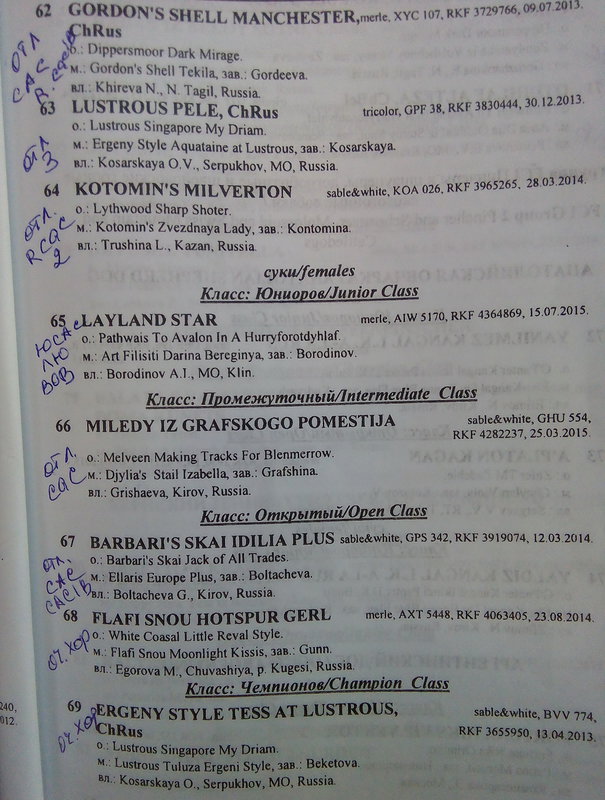 62 GORDON'S SHELL MANCHESTER, merle, XYC 107, RKF 3729766, 09.07.2013.
ChRus
ОТЛ
CAC
R.CACIB
о.: Dippersmoor Dark Mirage.
м.: Gordon's Shell Tekila, зав.: Gordeeva.
вл.: Khireva N., N. Tagil, Russia.
63 LUSTROUS PELE, ChRus tricolor, GPF 38, RKF 3830444, 30.12.2013.
ОТЛ
3
о.: Lustrous Singapore My Driam.
м.: Ergeny Style Aquataine at Lustrous, зав.: Kosarskaya.
вл.: Kosarskaya O.V., Serpukhov, MO, Russia.
64 KOTOMIN'S MILVERTON sable&white, KOA 026, RKF 3965265, 28.03.2014.
ОТЛ.
RCAC
2
о.: Lythwood Sharp Shoter.
м.: Kotomin's Zvezdnaya Lady, зав.: Kontomina.
вл.: Trushina L., Kazan, Russia.
суки/females
Класс: Юниоров/Junior Class
65 LAYLAND STAR merle, AIW 5170, RKF 4364869, 15.07.2015.
ЮСАС
ЛЮ
BOB
о.: Pathwais To Avalon In A Hurryforotdyhlaf.
м.: Art Filisiti Darina Bereginya, зав.: Borodinov.
вл.: Borodinov A.I., MO, Klin.
Класс: Промежуточный/Intermediate Class
66 MILEDY IZ GRAFSKOGO POMESTIJA sable&white, GHU 554,
RKF 4282237, 25.03.2015.
ОТЛ.
CAC
о.: Melveen Making Tracks For Blenmerrow.
м.: Djylia's Stail Izabella, зав.: Grafshina.
вл.: Grishaeva, Kirov, Russia.
Класс: Открытый/Open Class
67 BARBARI'S SKAI IDILIA PLUS sable&white, GPS 342, RKF 3919074, 12.03.2014.
ОТЛ.
CAC
CACIB
о.: Barbari's Skai Jack of All Trades.
м.: Ellaris Europe Plus, зав.: Boltacheva.
вл.: Boltacheva G., Kirov, Russia.
68 FLAFI SNOU HOTSPUR GERL merle, AXT 5448, RKF 4063405, 23.08.2014.
ОЧ.ХОР
о.: White Coasal Little Reval Style.
м.: Flafi Snou Moonlight Kissis, зав.: Gunn.
вл.: Egorova M., Chuvashiya, p. Kugesi, Russia.
Класс: Чемпионов/Champion Class
69 ERGENY STYLE TESS AT LUSTROUS, sable&white, BVV 774,
ChRus RKF 3655950, 13.04.2013.
ОЧ.ХОР
о.: Lustrous Singapore My Driam.
м.: Lustrous Tuluza Ergeni Style, зав.: Beketova.
вл.: Kosarskaya O., Serpukhov, MO, Russia.
240,
012.